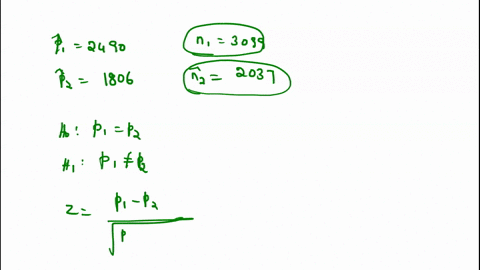 p̂₁ = 2490 n₁ = 3099
p̂₂ = 1806 n̂₂ = 2037
H₀: p₁ = p₂
H₁: p₁ ≠ p₂
z = p₁ - p₂
√p